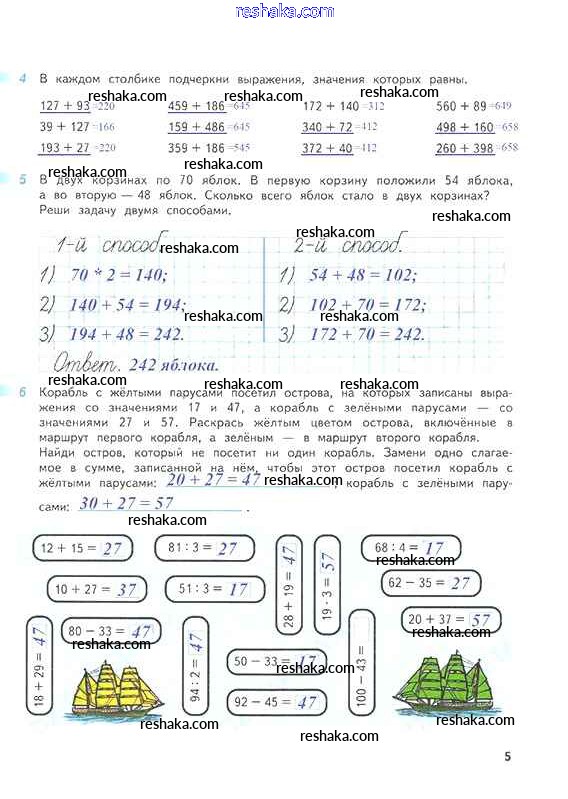 reshaka.com
4 В каждом столбике подчеркни выражения, значения которых равны.
reshaka.com
reshaka.com
reshaka.com
127 + 93 =220 459 + 186 =645 172 + 140 =312 560 + 89 =649
39 + 127 =166 159 + 486 =645 340 + 72 =412 498 + 160 =658
193 + 27 =220 359 + 186 =545 372 + 40 =412 260 + 398 =658
reshaka.com
reshaka.com
5 В двух корзинах по 70 яблок. В первую корзину положили 54 яблока,
а во вторую — 48 яблок. Сколько всего яблок стало в двух корзинах?
Реши задачу двумя способами.
reshaka.com
1-й способ. 2-й способ.
reshaka.com
reshaka.com
1) 70 * 2 = 140; 1) 54 + 48 = 102;
2) 140 + 54 = 194; 2) 102 + 70 = 172;
reshaka.com
reshaka.com
3) 194 + 48 = 242. 3) 172 + 70 = 242.
Ответ. 242 яблока.
reshaka.com
reshaka.com
6 Корабль с жёлтыми парусами посетил острова, на которых записаны выра-
жения со значениями 17 и 47, а корабль с зелёными парусами — со
значениями 27 и 57. Раскрась жёлтым цветом острова, включённые в
маршрут первого корабля, а зелёным — в маршрут второго корабля.
Найди остров, который не посетит ни один корабль. Замени одно слагае-
мое в сумме, записанной на нём, чтобы этот остров посетил корабль с
reshaka.com
жёлтыми парусами: 20 + 27 = 47, корабль с зелёными пару-
reshaka.com
сами: 30 + 27 = 57.
reshaka.com
12 + 15 = 27
81 : 3 = 27
68 : 4 = 17
reshaka.com
10 + 27 = 37
51 : 3 = 17
28 + 19 = 47
19 · 3 = 57
62 − 35 = 27
20 + 37 = 57
reshaka.com
80 − 33 = 47
reshaka.com
18 + 29 = 47
94 : 2 = 47
50 − 33 = 17
reshaka.com
92 − 45 = 47
100 − 43 =
reshaka.com
reshaka.com
reshaka.com
5